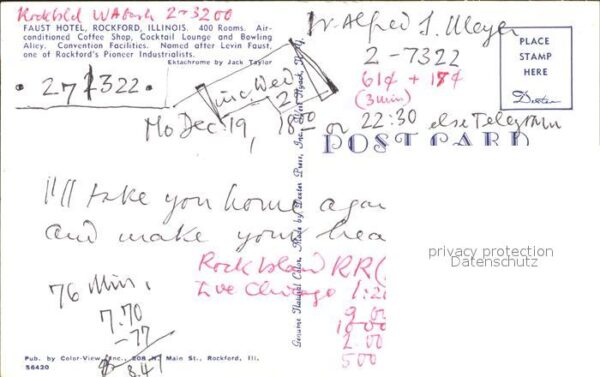 Rockbld WAbash 2-3200
FAUST HOTEL, ROCKFORD, ILLINOIS. 400 Rooms. Air-
conditioned Coffee Shop, Cocktail Lounge and Bowling
Alley. Convention Facilities. Named after Levin Faust,
one of Rockford's Pioneer Industrialists.
Ektachrome by Jack Taylor
Alfred J. Meyer
2-7322
61¢ + 18¢
(3 min)
PLACE
STAMP
HERE
Dexter
277322
inc. Wed
2
Mo Dec 19, 18:00 or 22:30 else Telegram
POST CARD
I'll take you home again
and make your hea
privacy protection
Datenschutz
Rock Island RR
Lve Chicago 1:2
9
1000
2.00
500
76 Min,
7.70
-77
8.47
Genuine Natural Color. Made by Dexter Press, Inc.
Pub. by Color-View, Inc., 208 N. Main St., Rockford, Ill.
56420